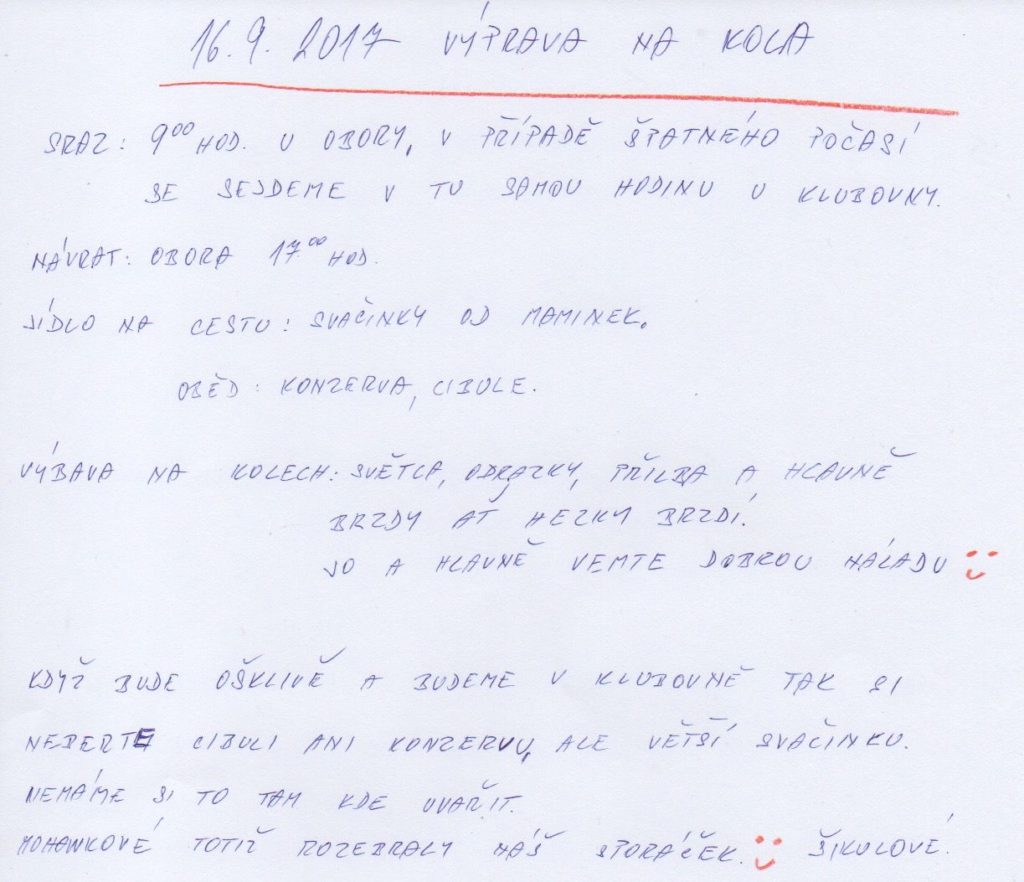 16.9. 2017 VÝPRAVA NA KOLA
SRAZ: 9⁰⁰ HOD. U OBORY, V PŘÍPADĚ ŠPATNÉHO POČASÍ
SE SEJDEME V TU SAMOU HODINU U KLUBOVNY.
NÁVRAT: OBORA 17⁰⁰ HOD.
JÍDLO NA CESTU: SVAČINKY OD MAMINEK.
OBĚD: KONZERVA, CIBULE.
VÝBAVA NA KOLECH: SVĚTLA, ODRAZKY, PŘILBA A HLAVNĚ
BRZDY AŤ HEZKY BRZDÍ.
JO A HLAVNĚ VEMTE DOBROU NÁLADU
KDYŽ BUDE OŠKLIVĚ A BUDEME V KLUBOVNĚ TAK SI
NEBERTE CIBULI ANI KONZERVU, ALE VĚTŠÍ SVAČINKU.
NEMÁME SI TO TAM KDE UVAŘIT.
MOHAWKOVÉ TOTIŽ ROZEBRALY NÁŠ SPORÁČEK. ŠIKULOVÉ.